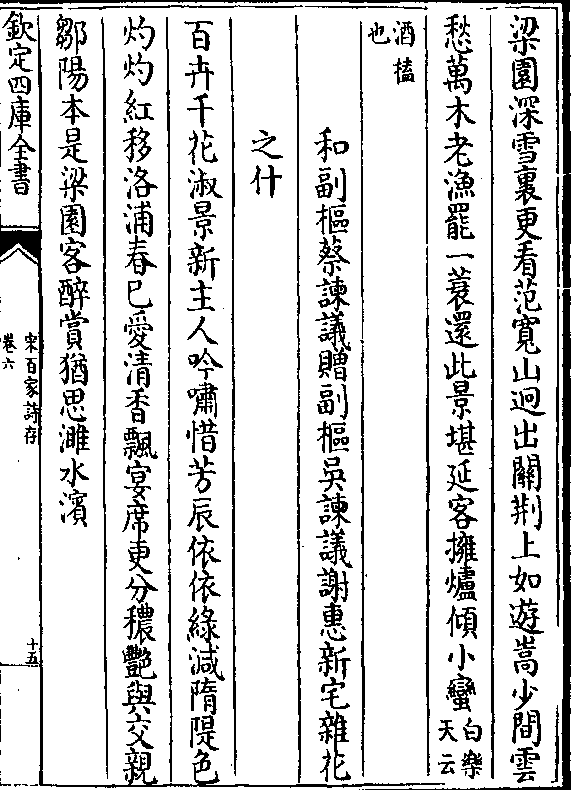 梁園深雪裏更看范寛山迥出關荆上如遊嵩少間雲
愁萬木老漁罷一蓑還此景堪延客擁爐傾小蠻白樂天云
酒榼也
和副樞蔡諫議贈副樞吳諫議謝惠新宅雜花
之什
百卉千花淑景新主人吟嘯惜芳辰依依綠減隋隄色
灼灼紅移洛浦春已愛清香飄宴席更分穠艷與交親
鄒陽本是梁園客醉賞猶思濉水濱
欽定四庫全書
宋百家詩存
卷六
十五